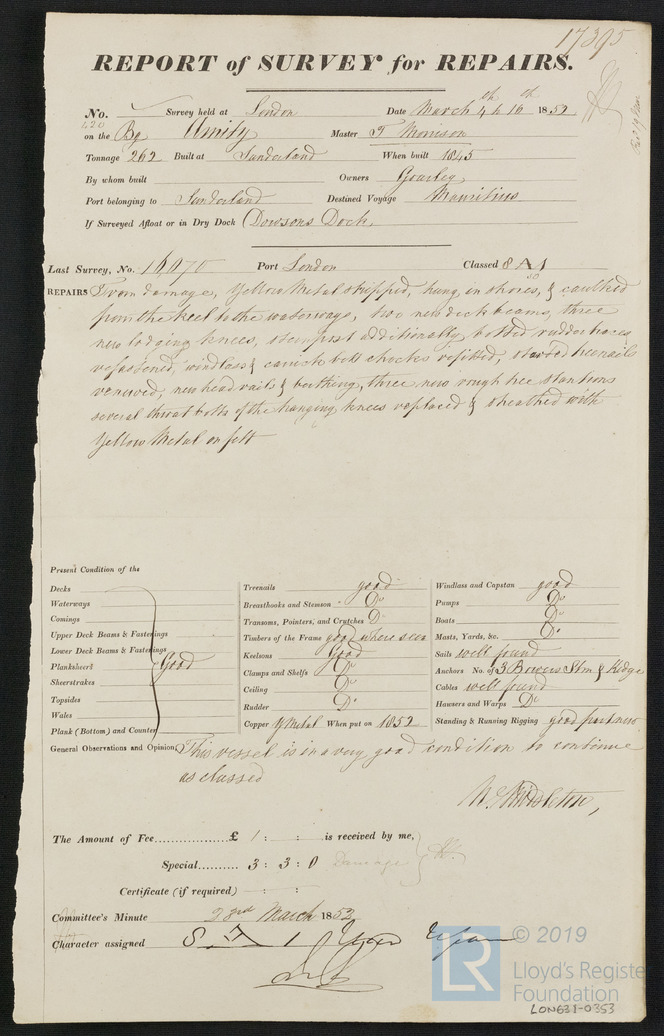 17395
REPORT of SURVEY for REPAIRS.
No. Survey held at London Date March 4th & 16th 1852
on the Bg Amity Master T Morrison
Tonnage 262 Built at Sunderland When built 1845
By whom built Owners Gourley
Port belonging to Sunderland Destined Voyage Mauritius
If Surveyed Afloat or in Dry Dock (Dowsons Dock,
Last Survey, No. 16,970 Port London Classed 8 A 1
REPAIRS From damage, Yellow Metal stripped, hung in shores, & caulked
from the keel to the waterways, two new deck beams, three
new lodging knees, sternpost additionally bolted rudder braces
refastened, windlass & carrick bitt chocks refitted, started treenails
renewed, new head rails & berthing, three new rough tree stantions
several throat bolts of the hanging knees replaced & sheathed with
Yellow Metal on felt
Present Condition of the
Decks
Waterways
Comings
Upper Deck Beams & Fastenings
Lower Deck Beams & Fastenings
Planksheers Good
Sheerstrakes
Topsides
Wales
Plank (Bottom) and Counter
Treenails good
Breasthooks and Stemson Do
Transoms, Pointers, and Crutches Do
Timbers of the Frame good where seen
Keelsons Good
Clamps and Shelfs Do
Ceiling Do
Rudder Do
Copper Y Metal When put on 1852
Windlass and Capstan good
Pumps Do
Boats Do
Masts, Yards, &c. Do
Sails well found
Anchors No. of 3 Bowers Strm & Kedge
Cables well found
Hawsers and Warps Do
Standing & Running Rigging good part new
General Observations and Opinion, This vessel is in a very good condition to continue
as classed
W. Middleton,
The Amount of Fee £ 1 : : is received by me,
Special 3 : 3 : 0 Damage
Certificate (if required) : :
Committee's Minute 23rd March 1852
Character assigned 8 A 1
© 2019
LR
Lloyd's Register
Foundation
LON631-0353